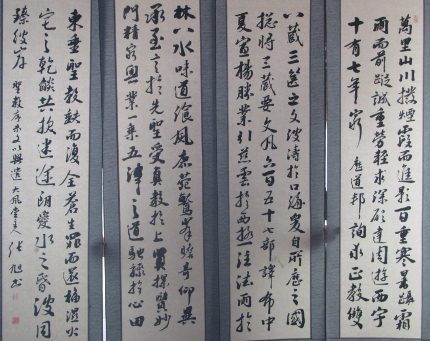 萬里山川撥煙霞而進影百重寒暑躡霜
雨而前蹤誠重勞輕求深願達周遊西宇
十有七年窮歷道邦詢求正教雙
八藏三篋之文波濤於口海爰自所歷之國
總將三藏要文凡六百五十七部譯布中
夏宣揚勝業引慈雲於西極注法雨於
林八水味道飡風鹿苑鷲峯瞻奇仰異
承至言於先聖受真教於上賢探賾妙
門精窮奧業一乘五律之道馳驟於心田
東垂聖教缺而復全蒼生罪而還福濕火
宅之乾燄共拔迷途朗愛水之昏波同
臻彼岸 聖教序 張旭書